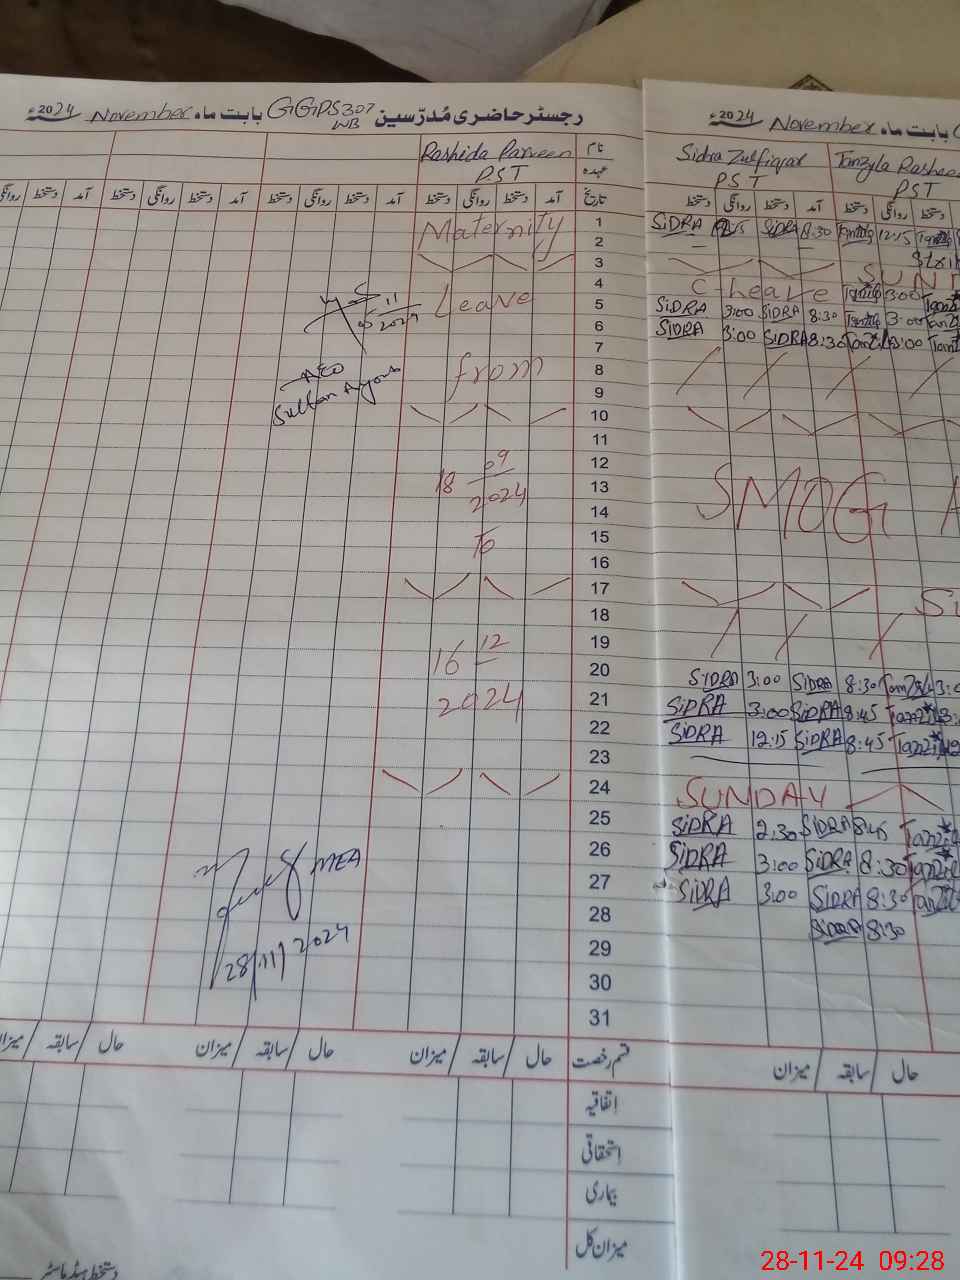 رجسٹر حاضری مُدرّسین GGPS 307 WB بابت ماہ November 2024ء
نام Rashida Parveen
عہدہ PST
تاریخ آمد دستخط روانگی دستخط آمد دستخط روانگی دستخط آمد دستخط روانگی دستخط آمد دستخط روانگی
1 Maternity
2
3
4
5 Leave
6
7
8 from
9
10
11
12 09
13 18 2024
14
15 To
16
17
18
19 12
20 16
21 2024
22
23
24
25
26
27
28
29
30
31
11
05 2024
AEO
Sultan Ayoub
MEA
28/11/2024
قسم رخصت حال / سابقہ / میزان حال / سابقہ / میزان حال / سابقہ / میزان
اتفاقیہ
استحقاقی
بیماری
میزان کل
دستخط ہیڈ ماسٹر
بابت ماہ November 2024ء
Sidra Zulfiqar Tanzyla Rasheed
PST PST
دستخط روانگی دستخط آمد دستخط روانگی دستخط
SiDRA SiDRA 8:30 12:15
SUND
C-leave 3:00
SiDRA 3:00 SiDRA 8:30 3:00
SiDRA 3:00 SiDRA 8:30 3:00
SMOG
SiDRA 3:00 SiDRA 8:30
SiDRA 3:00 SiDRA 8:45
SiDRA 12:15 SiDRA 8:45
SUNDAY
SiDRA 2:30 SiDRA 8:45
SiDRA 3:00 SiDRA 8:30
SiDRA 3:00 SiDRA 8:30
SiDRA 8:30
حال / سابقہ / میزان
28-11-24 09:28